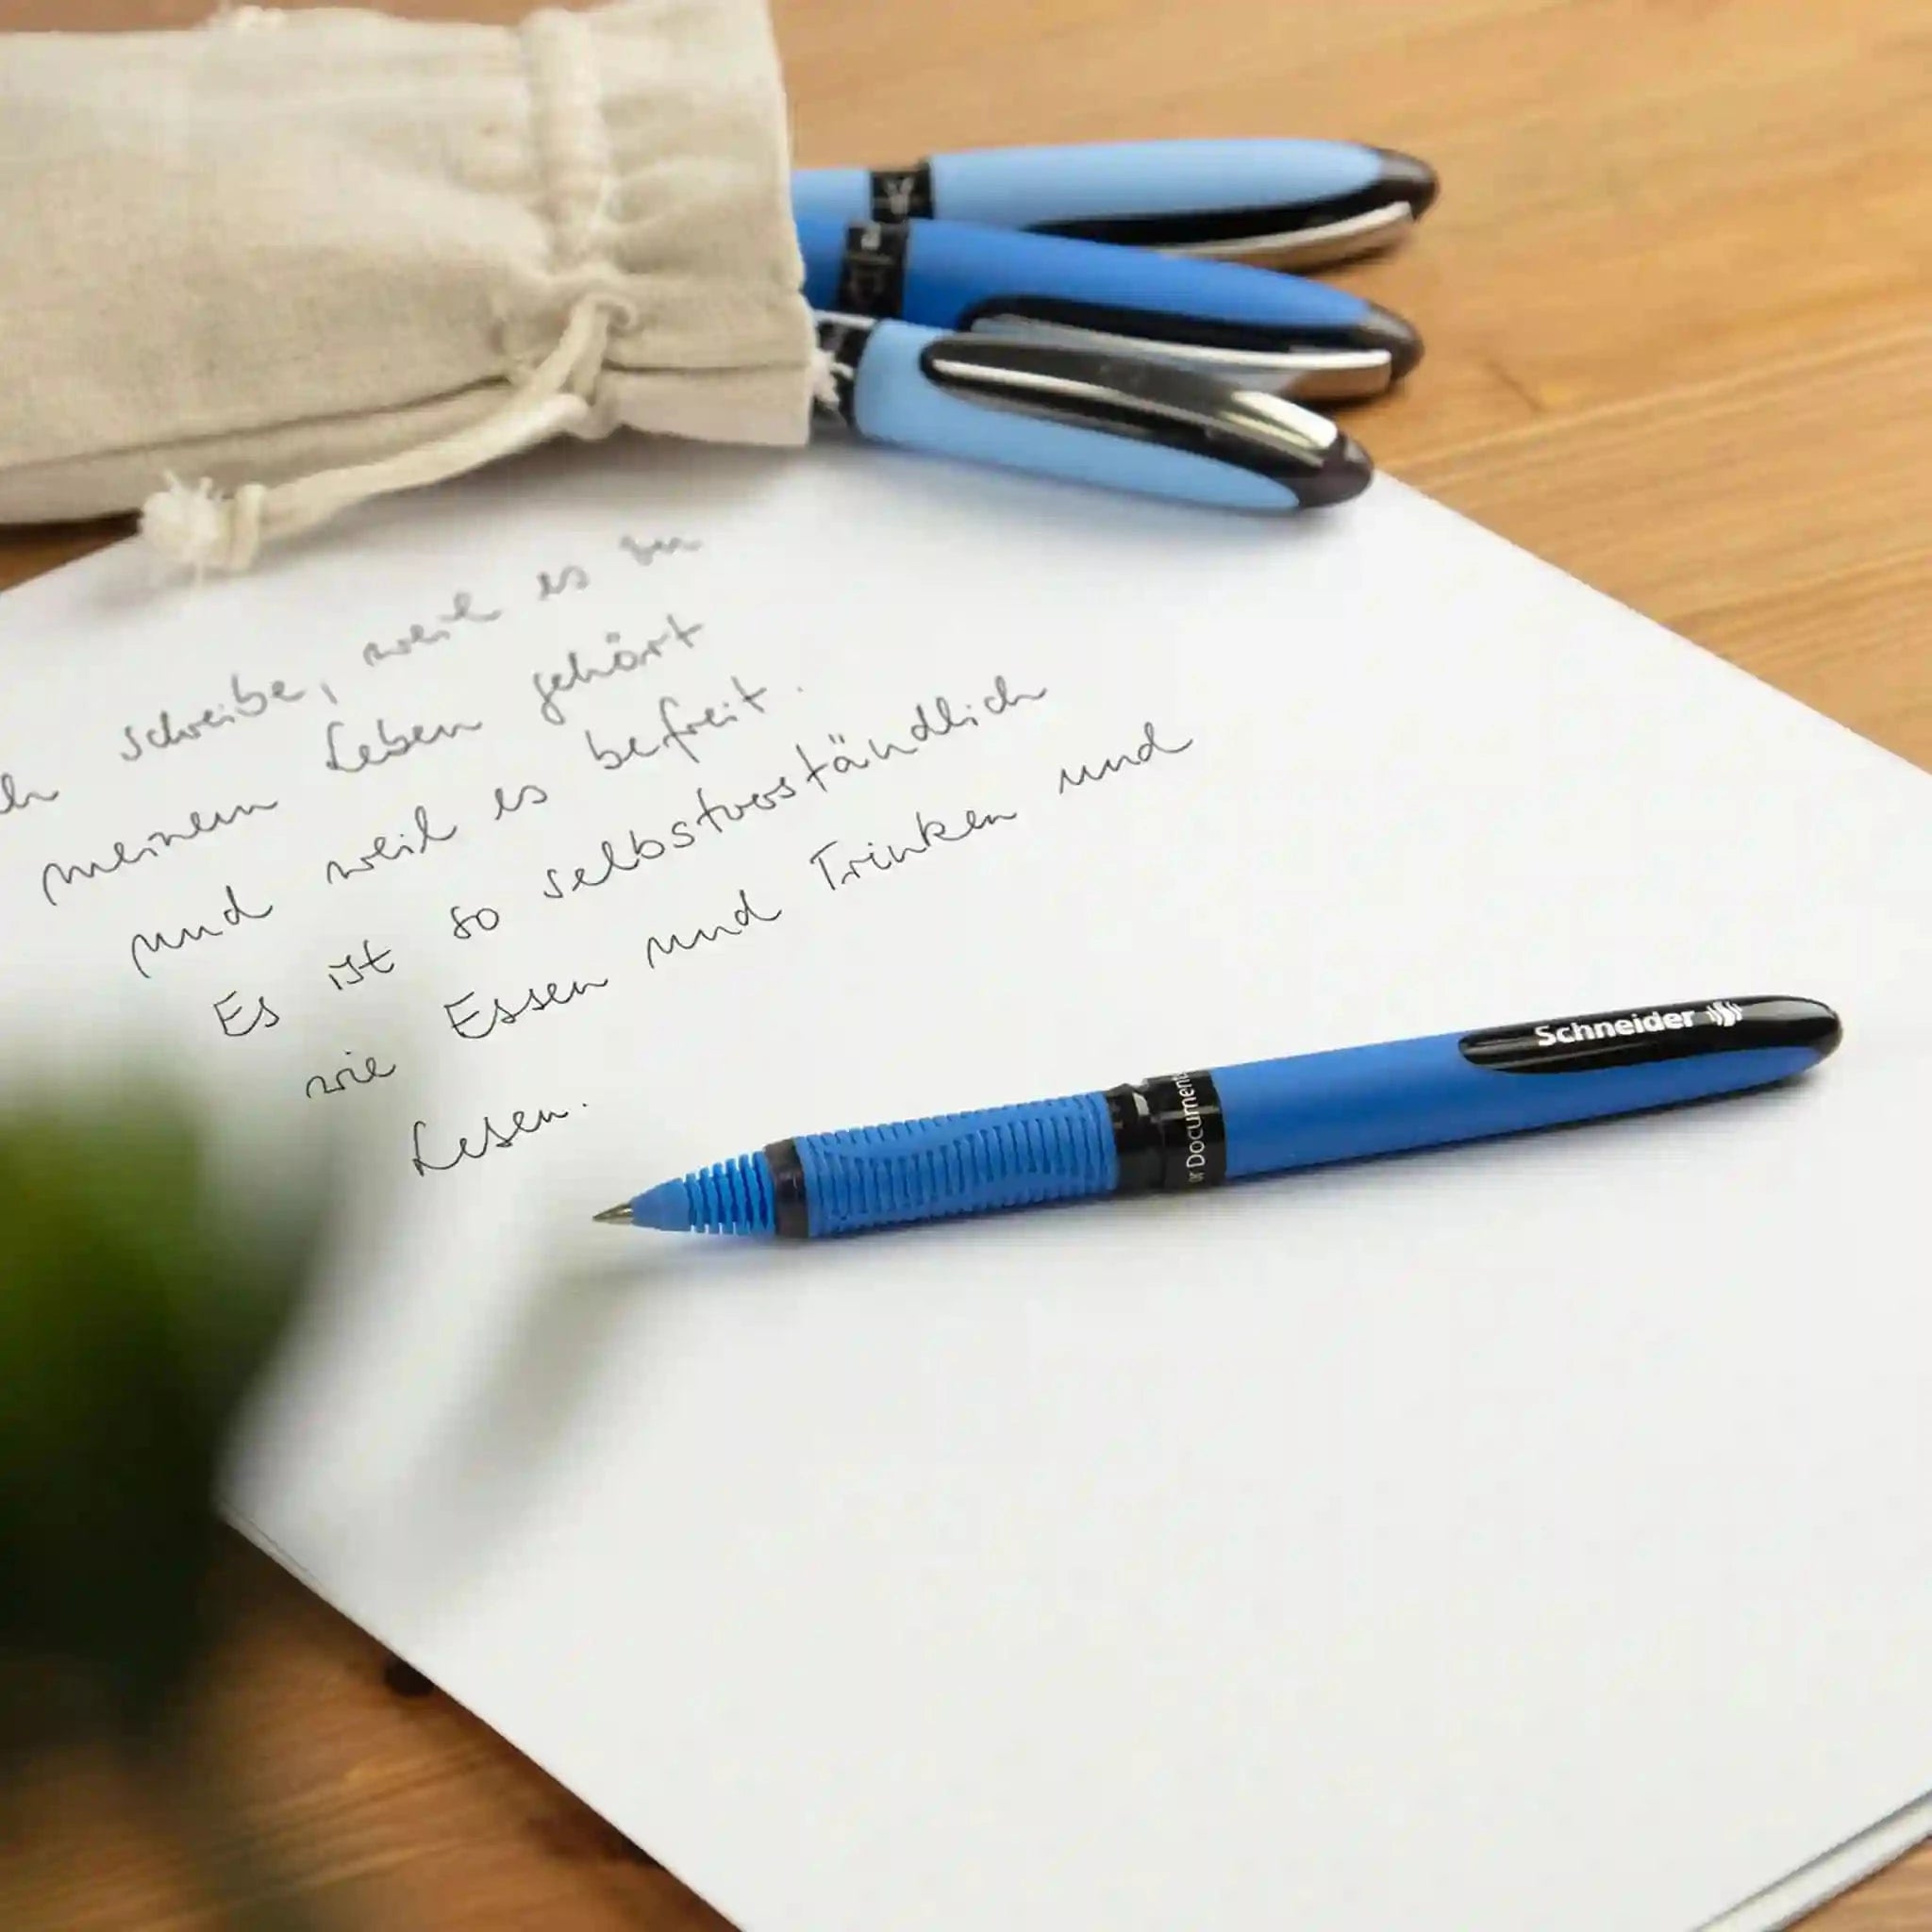 ch schreibe, weil es zu
meinem Leben gehört
und weil es befreit.
Es ist so selbstverständlich
wie Essen und Trinken und
Lesen.
Schneider
or Document